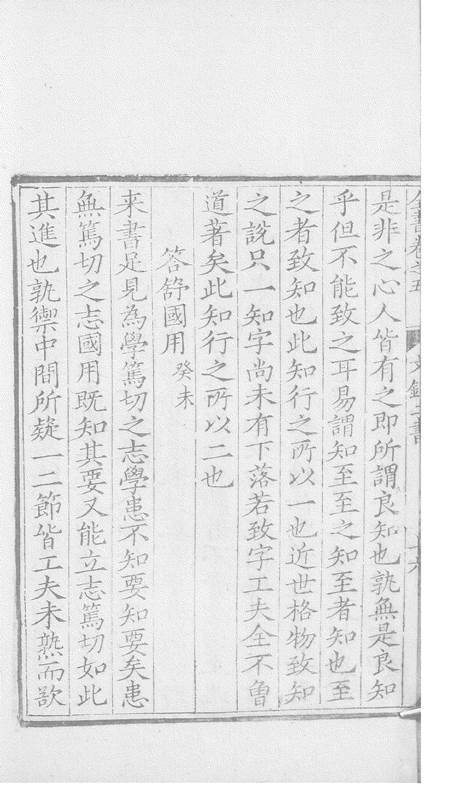 全書卷之五
是非之心人皆有之即所謂良知也孰無是良知
乎但不能致之耳易謂知至至之知至者知也至
之者致知也此知行之所以一也近世格物致知
之說只一知字尚未有下落若致字工夫全不曾
道著矣此知行之所以二也
答舒國用 癸未
來書足見為學篤切之志學患不知要知要矣患
無篤切之志國用既知其要又能立志篤切如此
其進也孰禦中間所疑一二節皆工夫未熟而欲